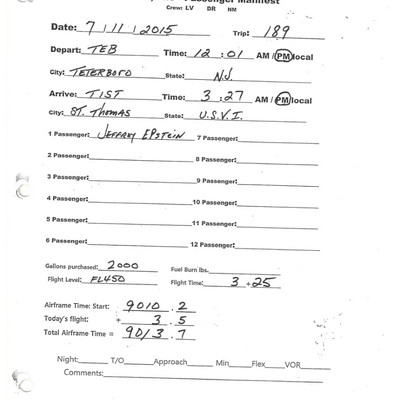 Passenger Manifest
Crew: LV DR NM
Date: 7 | 11 | 2015 Trip: 189
Depart: TEB Time: 12 : 01 AM / PM local
City: TETERBORO State: NJ
Arrive: TIST Time: 3 : 27 AM / PM local
City: ST. THOMAS State: U.S.V.I.
1 Passenger: JEFFREY EPSTEIN 7 Passenger:
2 Passenger: 8 Passenger:
3 Passenger: 9 Passenger:
4 Passenger: 10 Passenger:
5 Passenger: 11 Passenger:
6 Passenger: 12 Passenger:
Gallons purchased: 2000 Fuel Burn lbs.
Flight Level: FL450 Flight Time: 3 + 25
Airframe Time: Start: 9010 . 2
Today's flight: + 3 . 5
Total Airframe Time = 9013 . 7
Night: T/O Approach Min Flex VOR
Comments: